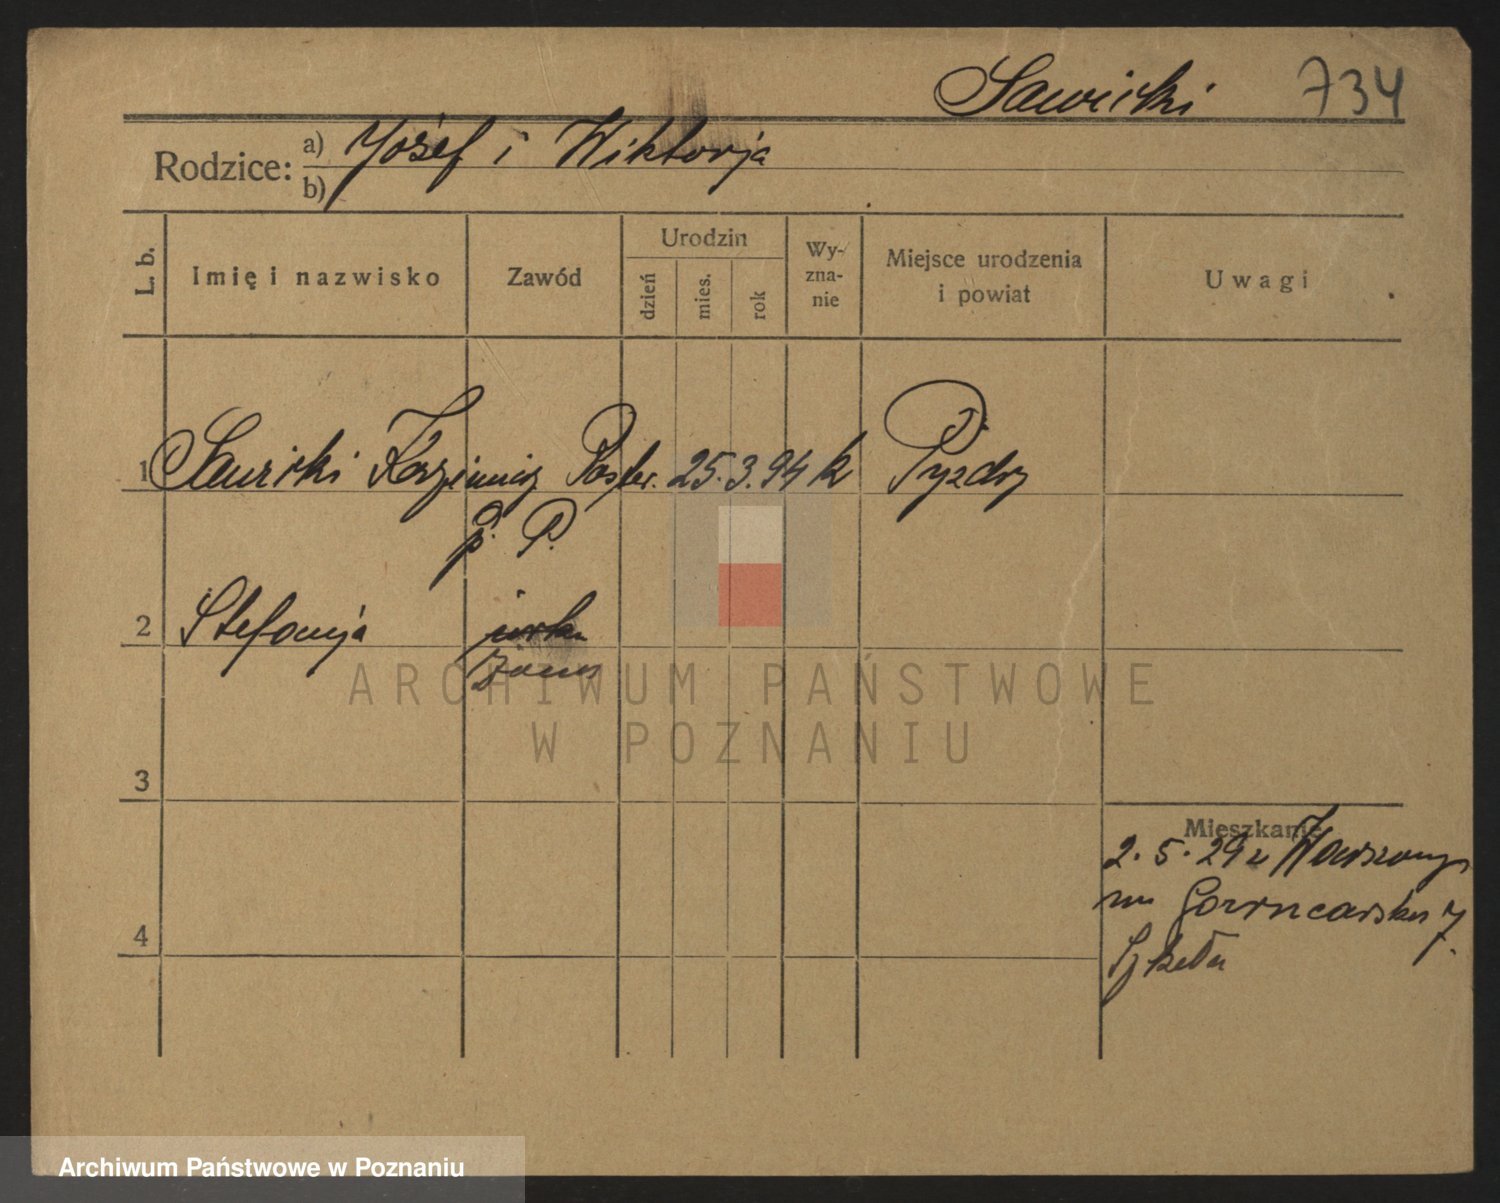 Sawicki 734
Rodzice: a) Józef i Wiktorja
b)
L. b. Imię i nazwisko Zawód Urodzin dzień mies. rok Wy-zna-nie Miejsce urodzenia i powiat Uwagi
1 Sawicki Kazimierz Poster. 25. 3. 94 k Pyzdry
p. P.
2 Stefanja
żona
3
Mieszkanie
2. 5. 29 z Warszawy
na 7.
4
Szkoła
ARCHIWUM PAŃSTWOWE
W POZNANIU
Archiwum Państwowe w Poznaniu